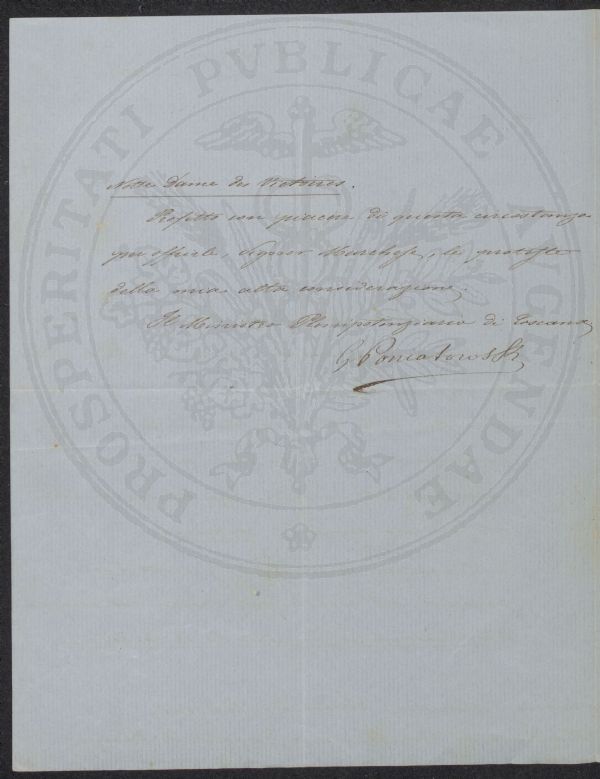 PROSPERITATI PVBLICAE AVGENDAE
Notre Dame des Victoires.
Profitto con piacere di questa circostanza
per offrirle, Signor Marchese, le proteste
della mia alta considerazione.
Il Ministro Plenipotenziario di Toscana
G Poniatowski